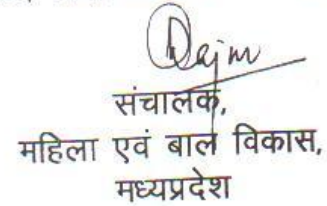 संचालक,
महिला एवं बाल विकास,
मध्यप्रदेश